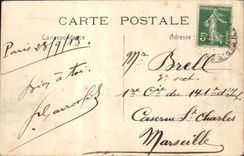 CARTE POSTALE
Correspondance
Adresse
5c
Paris 28/9/13.
Mr Brell
Bien à toi.
1re Cie du 141e d'I
Caserne St Charles
Marseille